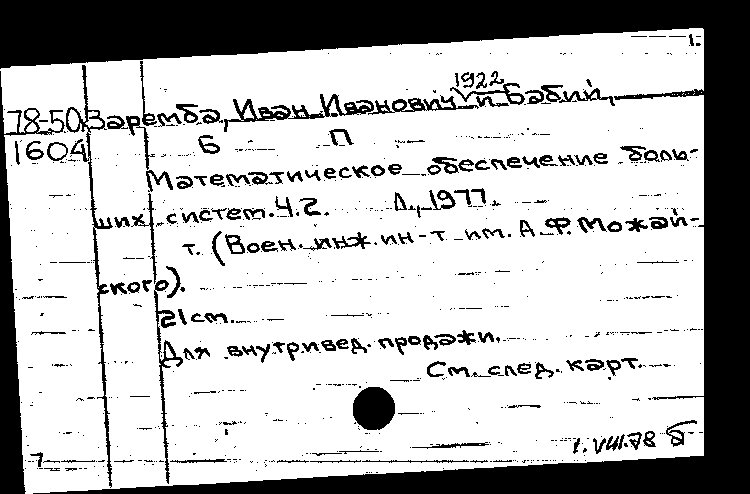 1.
1922
78-50. Заремба, Иван Иванович и Бабий,
1604 Б П
Математическое обеспечение боль-
ших систем. Ч.2. Л., 1977.
т. (Воен. инж. ин-т им. А.Ф. Можай-
ского).
21 см.
Для внутривед. продажи.
См. след. карт.
1.VIII.78 Б
7